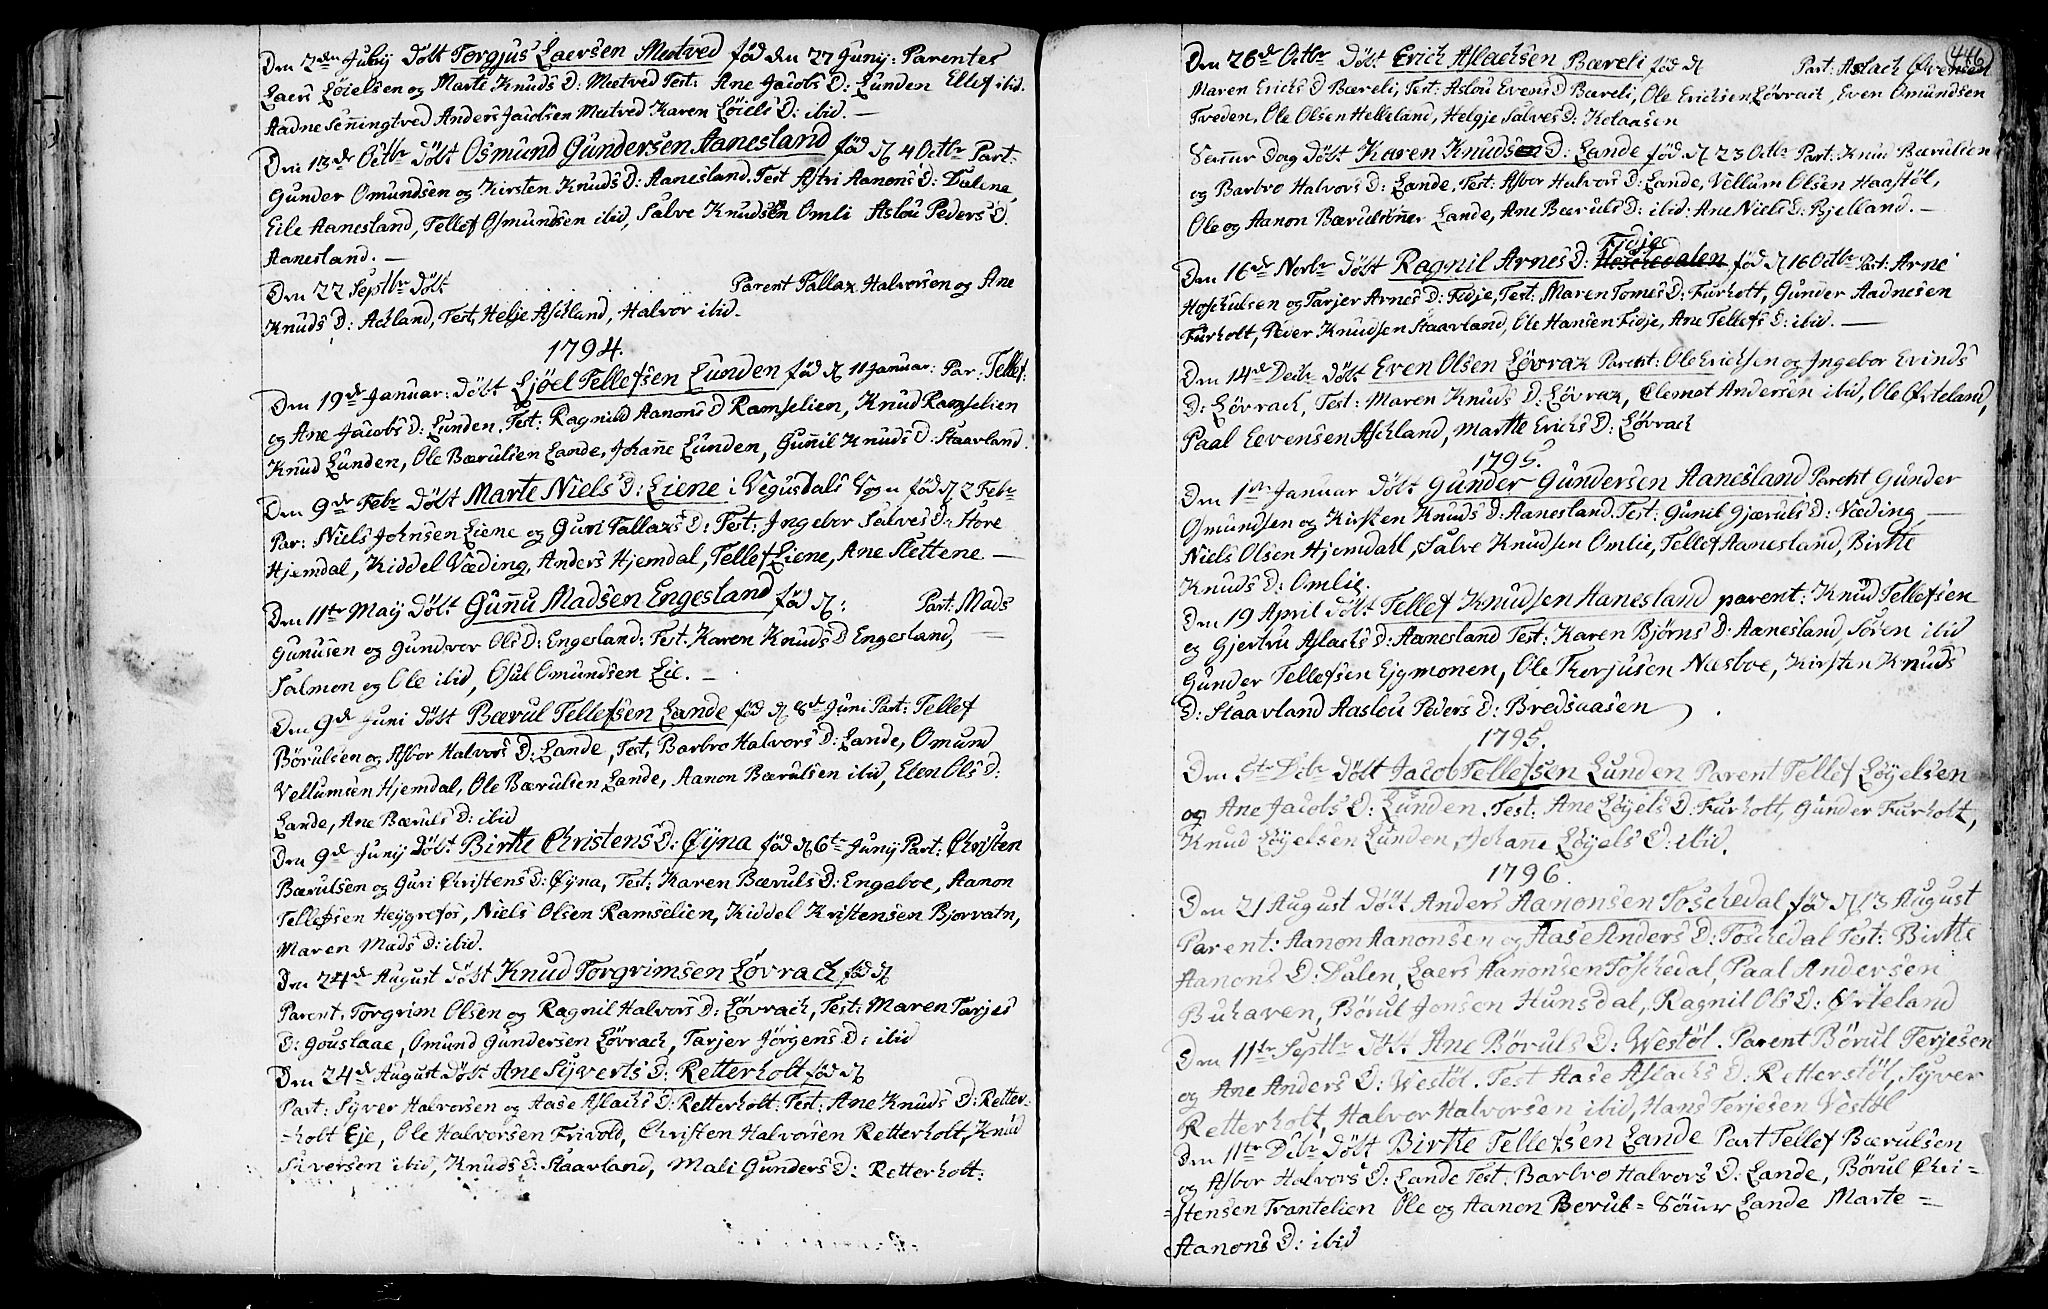 Den 2den Julij døbt Torgjus Laersen Meetved fød den 27 Junij: Parentes
Laers Løielsen og Marte Knuds D: Meetved Test: Ane Jacobs D: Lunden Ellef ibid.
Aadne Senningtved Anders Jacobsen Meetved Karen Løiels D: ibid. —
Den 13de Octbr døbt Osmund Gundersen Aanesland fød d 4 Octbr Part:
Gunder Omundsen og Kirsten Knuds D: Aanesland. Test Astri Aanons D: Dalene,
Eile Aanesland, Tellef Osmundsen ibid, Salve Knudsen Omli Aslou Peders D.
Aanesland. —
Den 22 Septbr døbt . . . . . Parent Tallax Halvorsen og Ane
Knuds D: Ackland, Test, Helje Aschland, Halvor ibid.
1794.
Den 19de Januar: døbt Ljøel Tellefsen Lunden fød d 11 Januar: Par: Tellef:
og Ane Jacobs D: Lunden. Test: Ragnild Aanons D Ramselien, Knud Ramselien
Knud Lunden, Ole Bærulsen Lande, Johane Lunden, Gunnil Knuds D. Staavland.
Den 9de Febr døbt Marte Niels D: Liene i Vegusdals Sogn fød d 2 Febr
Par: Niels Johnsen Liene og Guri Tallaxs D: Test: Ingebor Salves D: Store
Hjemdal, Kiddel Væding, Anders Hjemdal, Tellef Liene, Ane Slettene —
Den 11te Maij døbt Gunnu Madsen Engesland fød d: Part: Mads
Gunusen og Gundvor Ols D: Engesland: Test: Karen Knuds D Engesland, —
Salmon og Ole ibid, Osul Omundsen Lie. —
Den 9de Juni døbt Bærul Tellefsen Lande fød d 8de Juni Part: Tellef
Børulsen og Asbor Halvors D: Lande, Test, Barbro Halvors D: Lande, Omund
Vellumsen Hjemdal, Ole Bærulsen Lande, Aanon Bærulsen ibid, Elen Ols D:
Lande, Ane Bæruls D: ibid
Den 9de Junij døbt Birtte Christens D: Øyna fød d 6te Junij Part: Christen
Bærulsen og Guri Christens D: Øyna, Test: Karen Bæruls D: Engeboe, Aanon
Tellefsen Heygrefos, Niels Olsen Ramselien, Kiddel Kristensen Bjorvatn,
Maren Mads D: ibid.
Den 24de August døbt Knud Torgrimsen Løvrach fød d
Parent. Torgrim Olsen og Ragnil Halvors D: Løvrach, Test: Maren Tarjes
D: Gouslaae, Omund Gundersen Løvrach, Tarjer Jørgens D: ibid
Den 24de August døbt Ane Syverts D: Retterholt fød d
Part: Syver Halvorsen og Aase Aslachs D: Retterholt: Test: Ane Knuds D: Retter-
-holt Eje, Ole Halvorsen Frivold, Christen Halvorsen Retterholt, Knud
Siversen ibid, Knuds D: Staavland, Mali Gunders D: Retterholt:
446
Den 26de Octbr døbt Erich Aslachsen Bæreli fød d Part: Aslach Evensen
Maren Erichs D Bæreli, Test: Aslou Evens D Bæreli, Ole Erichsen Løvrach, Even Omundsen
Tveden, Ole Olsen Helleland, Helgje Salves D: Kolaasen
Samme Dag døbt Karen Knuds D: Lande fød d 23 Octbr Part: Knud Bærulsen
og Barbro Halvors D: Lande, Test: Asbor Halvors D: Lande, Vellum Olsen Haastøl,
Ole og Aanon Bærulsøner Lande, Ane Bæruls D: ibid: Ane Niels D: Bjelland. —
Fidje
Den 16de Novbr døbt Ragnil Arnes D: Hoschedalen fød d 16 Octbr Part: Arne
Hoschulsen og Tarjer Arnes D: Fidje, Test: Maren Tomes D: Furholt, Gunder Aadnesen
Furholt, Peder Knudsen Staavland, Ole Hansen Fidje, Ane Tellefs D: ibid. —
Den 14de Decbr døbt Even Olsen Løvrax Parent: Ole Erichsen og Ingebor Evinds
D: Løvrach, Test: Maren Knuds D: Løvrax, Clemet Andersen ibid, Ole Østeland,
Paal Eevensen Aschland, Martte Erichs D: Løvrach
1795.
Den 1ste Januar døbt Gunder Gundersen Aanesland Parent Gunder
Osmundsen og Kirsten Knuds D: Aanesland. Test: Gunil Gjæruls D: Væding, —
Niels Olsen Hjemdahl, Salve Knudsen Omlie, Tellef Aanesland, Birtte
Knuds D: Omlie.
Den 19 April døbt Tellef Knudsen Aanesland parent: Knud Tellefsen
og Gjertru Aslachs D: Aanesland Test: Karen Bjørns D: Aanesland, Søren ibid
Gunder Tellefsen Ejgmonen, Ole Thorjusen Næsboe, Kirsten Knuds
D: Staavland Aaslou Peders D: Bredsaasen.
1795.
Den 5te Decbr døbt Jacob Tellefsen Lunden Parent Tellef Løyelsen
og Ane Jacobs D: Lunden. Test: Ane Løyels D: Furholt, Gunder Furholt,
Knud Løyelsen Lunden, Johane Løyels D: ibid.
1796.
Den 21 August døbt Anders Aanonsen Toschedal fød d 13 August
Parent: Aanon Aanonsen og Aase Anders D: Toschedal Test: Birtte
Aanons D: Dalen, Laers Aanonsen Toschedal, Paal Andersen
Buhaven, Børul Jonsen Hunsdal, Ragnil Ols D: Østeland
Den 11te Septbr døbt Ane Børuls D: Westøl. Parent Børul Terjesen
og Ane Anders D: Westøl. Test Aase Aslachs D: Retterstøl, Syver
Retterholt, Halvor Halvorsen ibid, Hans Terjesen Vestøl
Den 11te Decbr døbt Birtte Tellefsen Lande Part Tellef Bærulsen
og Asbor Halvors D: Lande Test: Barbro Halvors D: Lande, Børul Chri=
=stensen Trantelien Ole og Aanon Borul= Sønner Lande Marte =
Aanons D: ibid